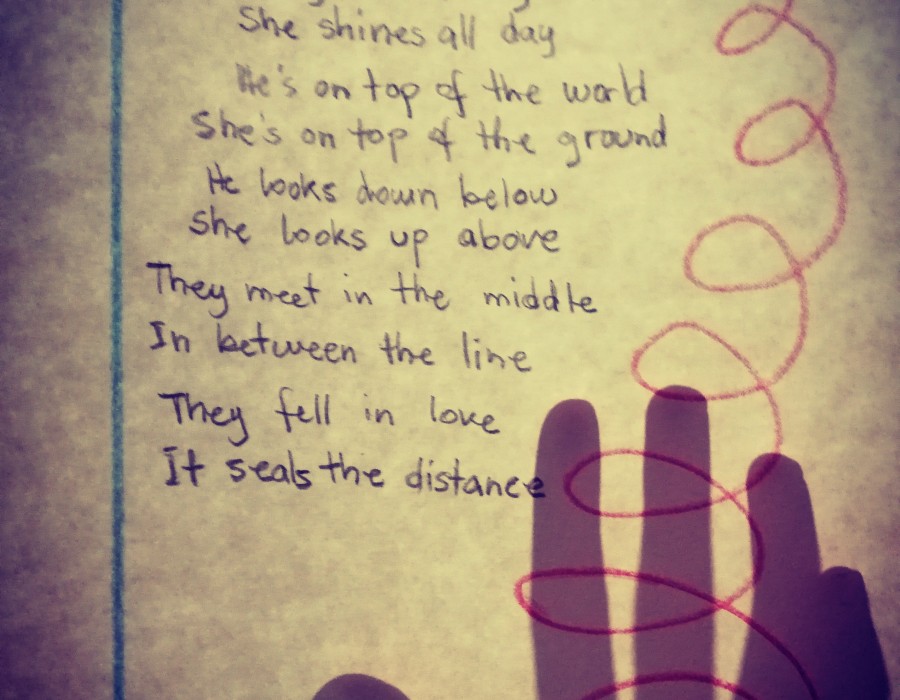 She shines all day
He's on top of the world
She's on top of the ground
He looks down below
She looks up above
They meet in the middle
In between the line
They fell in love
It seals the distance